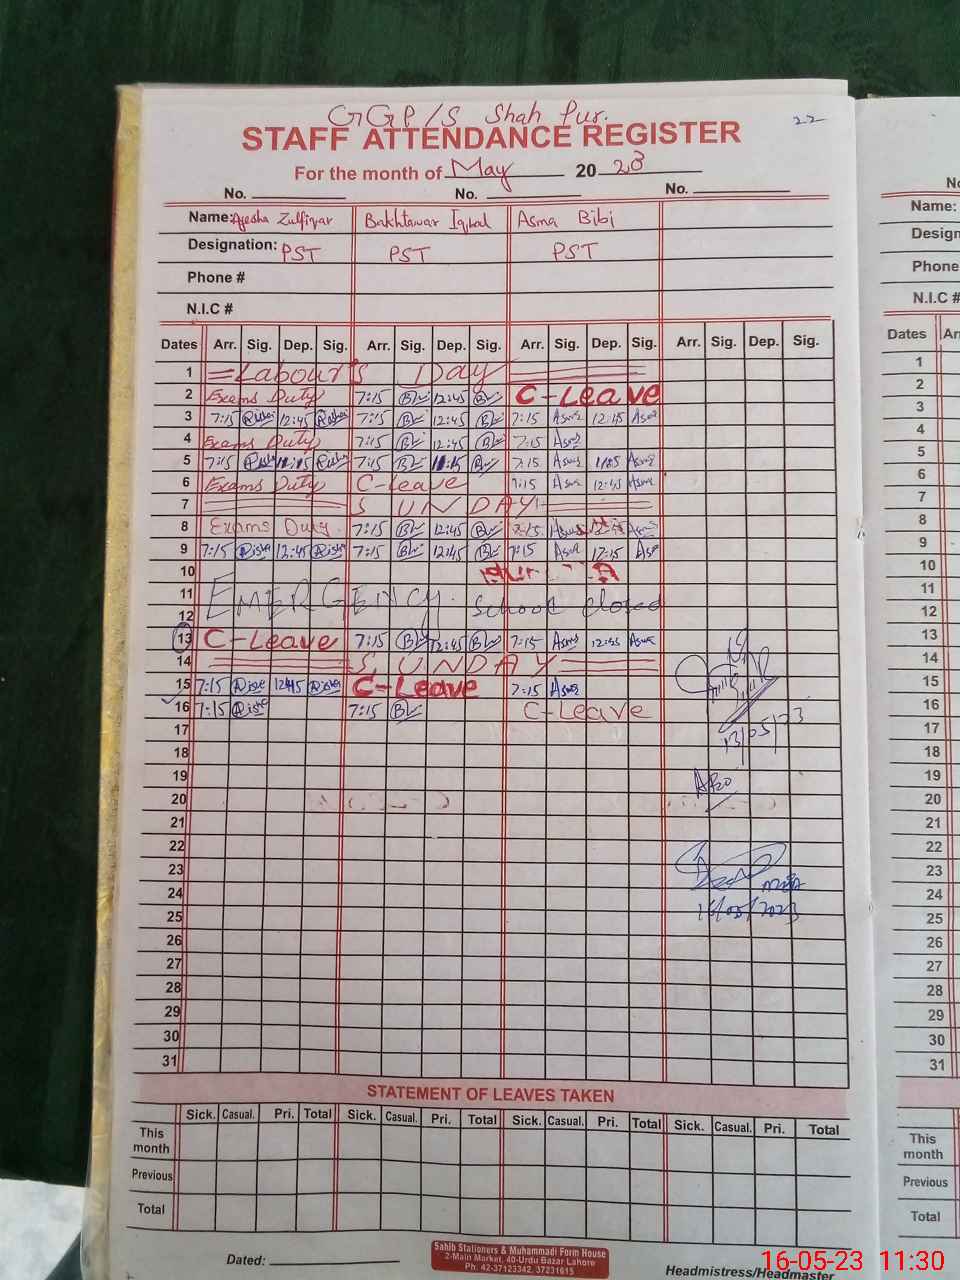 GGP/S Shah Pur.
22
STAFF ATTENDANCE REGISTER
For the month of May 2023
No. No. No.
Name: Ayesha Zulfiqar Bakhtawar Iqbal Asma Bibi
Designation: PST PST PST
Phone #
N.I.C #
Dates Arr. Sig. Dep. Sig. Arr. Sig. Dep. Sig. Arr. Sig. Dep. Sig. Arr. Sig. Dep. Sig.
1 Labour's Day
2 Exams Duty 7:15 12:45 C-Leave
3 7:15 12:45 7:15 12:45 7:15 Asma 12:15 Asma
4 Exams Duty 7:15 12:45 7:15 Asma
5 7:15 7:15 7:15 Asma Asma
6 Exams Duty C-leave 7:15 Asma 12:45 Asma
7 SUNDAY
8 Exams Duty 7:15 12:45 7:15 Asma
9 7:15 12:45 7:15 12:45 7:15 Asma 12:15
10
11 EMERGENCY. School closed
12
13 C-Leave 7:15 12:45 7:15 Asma 12:45 Asma
14 SUNDAY
15 7:15 12:45 C-Leave 7:15 Asma
16 7:15 7:15 C-Leave
13/05/23
17
18
19
20
21
22
23
24
16/05/2023
25
26
27
28
29
30
31
STATEMENT OF LEAVES TAKEN
Sick. Casual. Pri. Total Sick. Casual. Pri. Total Sick. Casual. Pri. Total Sick. Casual. Pri. Total
This month
Previous
Total
Dated:
Sahib Stationers & Muhammadi Form House
2-Main Market, 40-Urdu Bazar Lahore
Ph. 42-37123342, 37231615
Headmistress/Headmaster
16-05-23 11:30
No.
Name:
Design
Phone
N.I.C #
Dates Arr
1
2
3
4
5
6
7
8
9
10
11
12
13
14
15
16
17
18
19
20
21
22
23
24
25
26
27
28
29
30
31
This month
Previous
Total